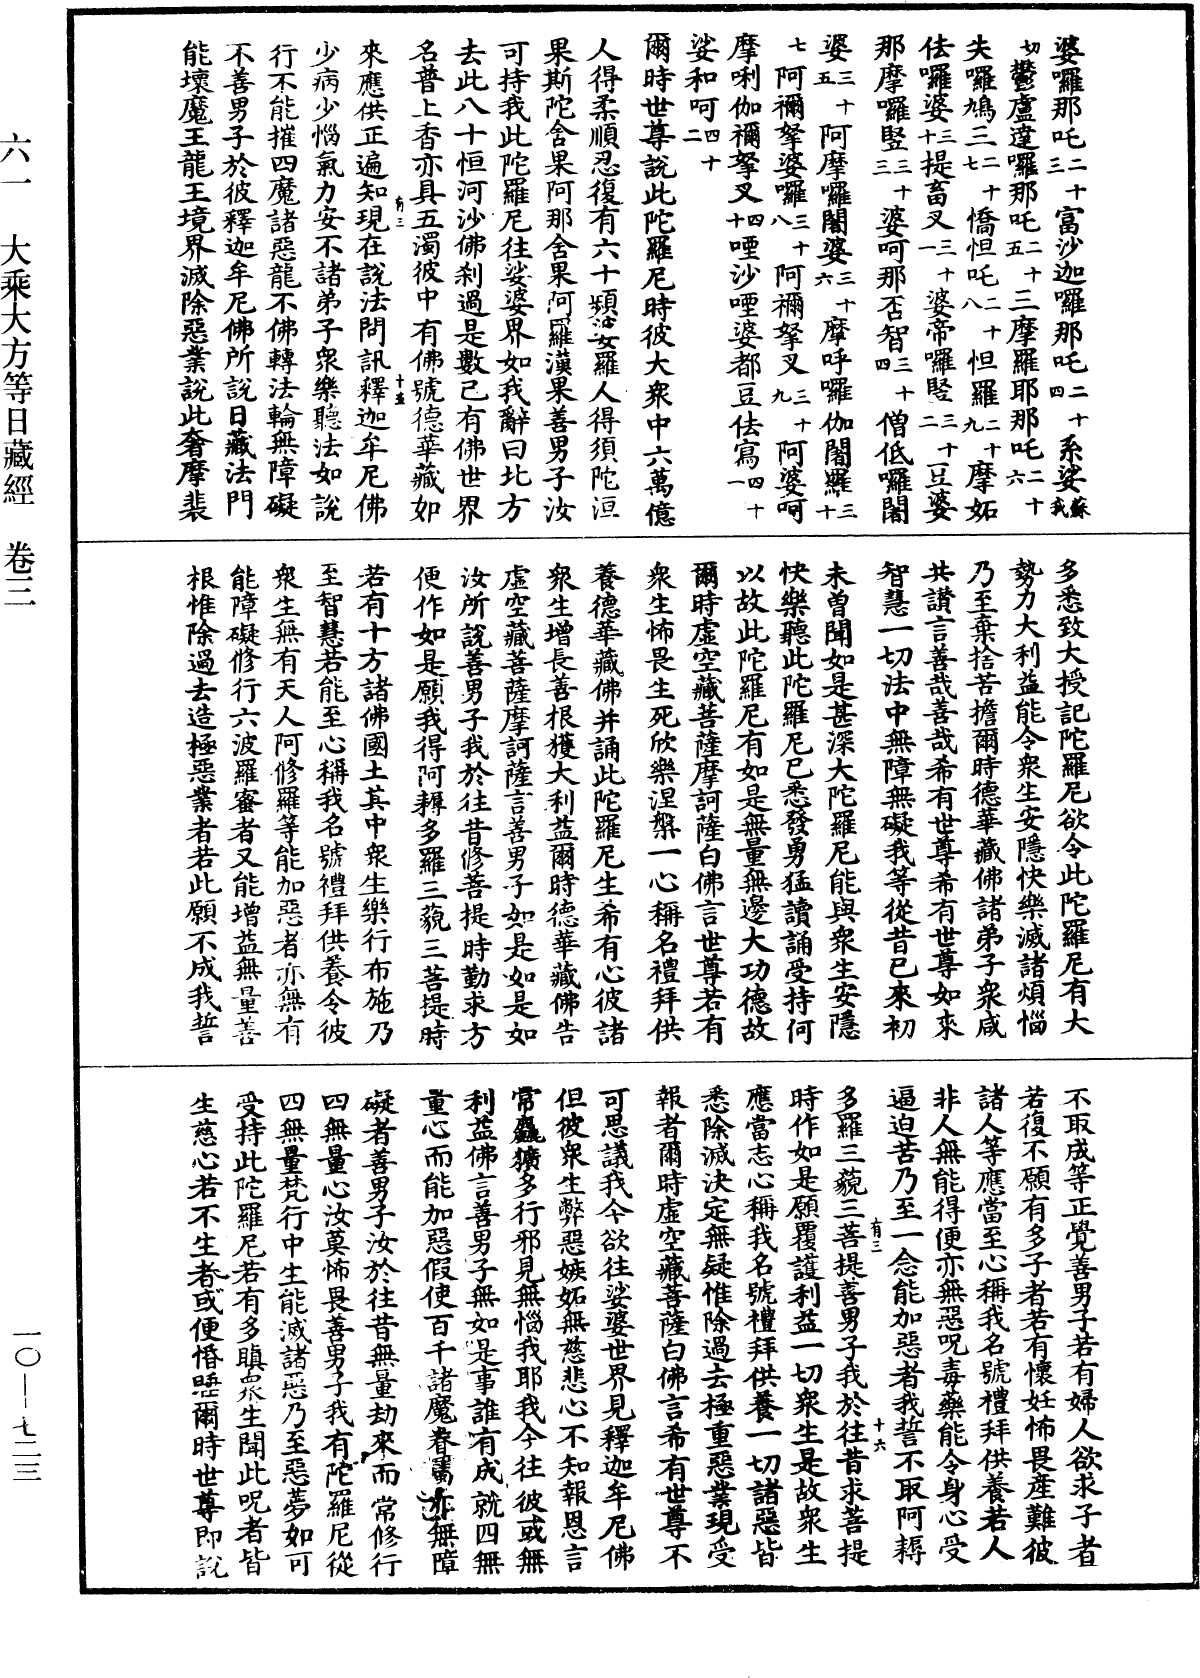 婆羅那吒二十三富沙迦羅那吒二十四系娑蘇我
切鬱盧達羅那吒二十五三摩羅耶那吒二十六
失羅鳩三二十七憍怛吒二十八怛羅二十九摩妬
佉囉婆三十提畜叉三十一婆帝囉竪三十二豆婆
那摩囉竪三十三婆呵那否智三十四僧低囉闍
婆三十五阿摩囉闍婆三十六摩呼囉伽闍羅三十
七阿禰拏婆囉三十八阿禰拏叉三十九阿婆呵
摩唎伽禰拏叉四十㖶沙㖶婆都豆佉寫四十一
娑和呵四十二
爾時世尊說此陀羅尼時彼大衆中六萬億
人得柔順忍復有六十頻婆羅人得須陀洹
果斯陀含果阿那含果阿羅漢果善男子汝
可持我此陀羅尼往娑婆界如我辭曰北方
去此八十恒河沙佛刹過是數已有佛世界
名普上香亦具五濁彼中有佛號德華藏如
來應供正遍知現在說法問訊釋迦牟尼佛
少病少惱氣力安不諸弟子衆樂聽法如說
行不能摧四魔諸惡龍不佛轉法輪無障礙
不善男子於彼釋迦牟尼佛所說日藏法門
能壞魔王龍王境界滅除惡業說此奢摩裴
多悉致大授記陀羅尼欲令此陀羅尼有大
勢力大利益能令衆生安隱快樂滅諸煩惱
乃至棄捨苦擔爾時德華藏佛諸弟子衆咸
共讚言善哉善哉希有世尊希有世尊如來
智慧一切法中無障無礙我等從昔已來初
未曾聞如是甚深大陀羅尼能與衆生安隱
快樂聽此陀羅尼已悉發勇猛讀誦受持何
以故此陀羅尼有如是無量無邊大功德故
爾時虛空藏菩薩摩訶薩白佛言世尊若有
衆生怖畏生死欣樂涅槃一心稱名禮拜供
養德華藏佛并誦此陀羅尼生希有心彼諸
衆生增長善根獲大利益爾時德華藏佛告
虛空藏菩薩摩訶薩言善男子如是如是如
汝所說善男子我於往昔修菩提時勤求方
便作如是願我得阿耨多羅三藐三菩提時
若有十方諸佛國土其中衆生樂行布施乃
至智慧若能至心稱我名號禮拜供養令彼
衆生無有天人阿修羅等能加惡者亦無有
能障礙修行六波羅蜜者又能增益無量善
根惟除過去造極惡業者若此願不成我誓
不取成等正覺善男子若有婦人欲求子者
若復不願有多子者若有懷妊怖畏產難彼
諸人等應當至心稱我名號禮拜供養若人
非人無能得便亦無惡呪毒藥能令身心受
逼迫苦乃至一念能加惡者我誓不取阿耨
多羅三藐三菩提善男子我於往昔求菩提
時作如是願覆護利益一切衆生是故衆生
應當志心稱我名號禮拜供養一切諸惡皆
悉除滅決定無疑惟除過去極重惡業現受
報者爾時虛空藏菩薩白佛言希有世尊不
可思議我今欲往娑婆世界見釋迦牟尼佛
但彼衆生弊惡嫉妬無慈悲心不知報恩言
常麤獷多行邪見無惱我耶我今往彼或無
利益佛言善男子無如是事誰有成就四無
量心而能加惡假使百千諸魔眷屬亦無障
礙者善男子汝於往昔無量劫來而常修行
四無量心汝莫怖畏善男子我有陀羅尼從
四無量梵行中生能滅諸惡乃至惡夢如可
受持此陀羅尼若有多瞋衆生聞此呪者皆
生慈心若不生者或便惛睡爾時世尊即說
有三
十五
有三
十六
六一 大乘大方等日藏經 卷三
一〇—七二三